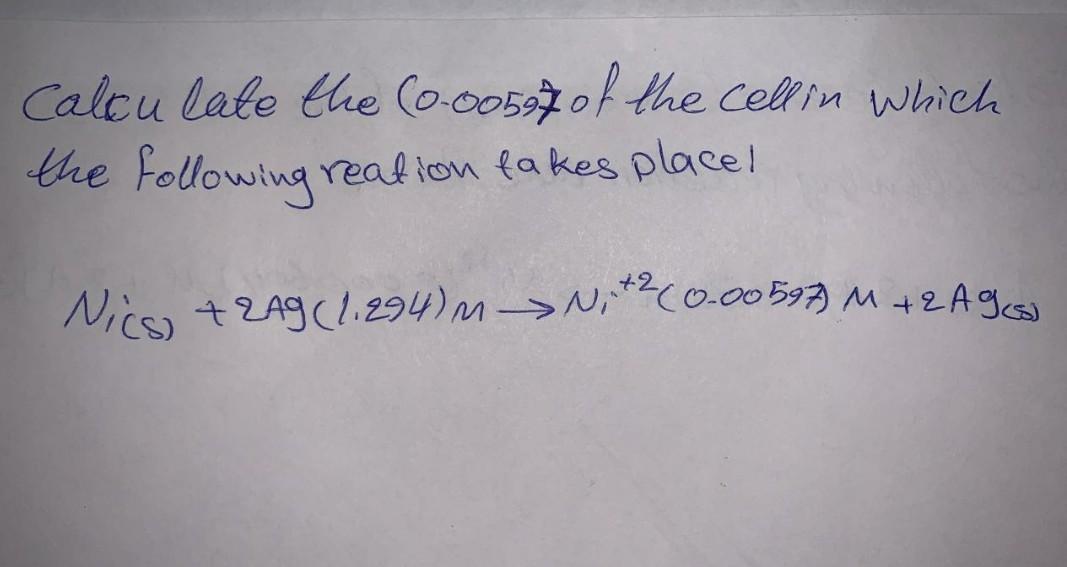 Calculate the (0.00597 of the cell in which
the following reation takes place!
Ni(s) + 2Ag(1.294)M → Ni+2(0.00597) M + 2Ag(s)